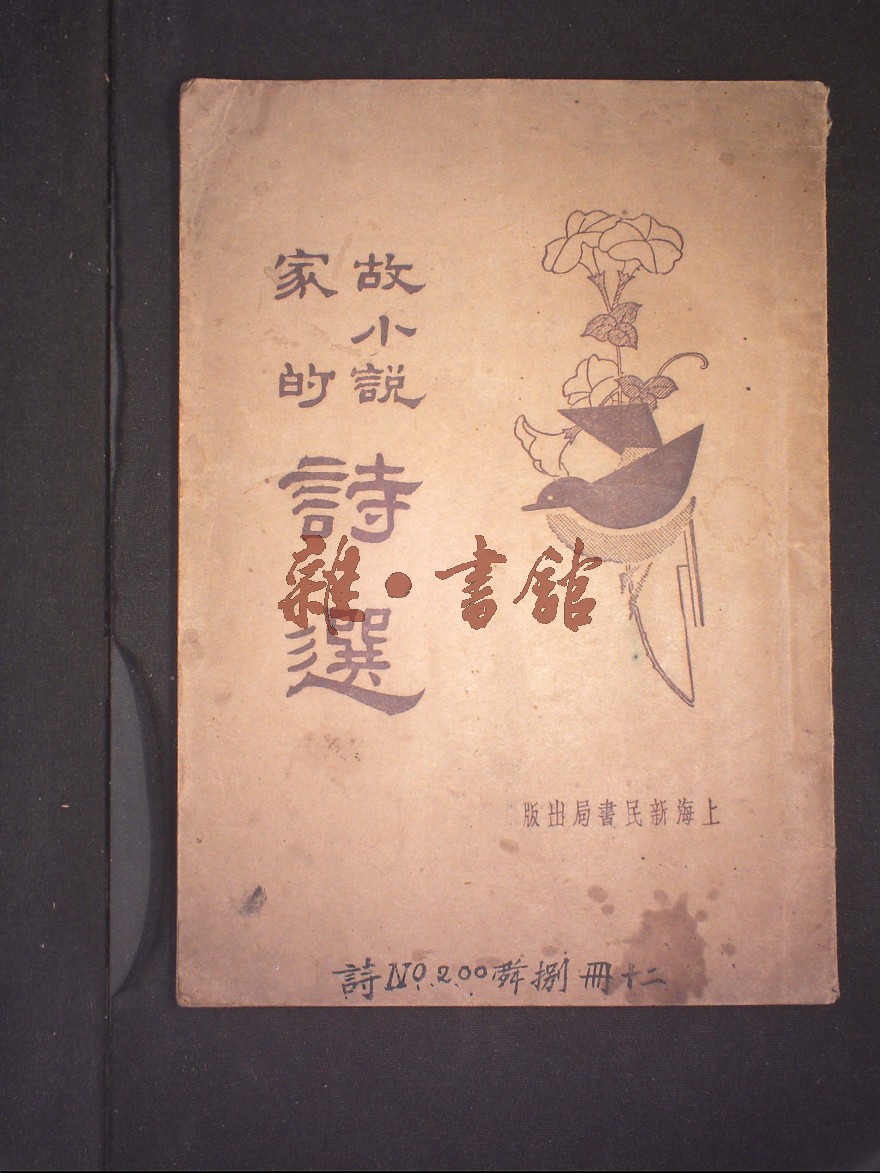 故小説
家的
詩選
雜•書舘
上海新民書局出版
詩NO.200 捌冊十二